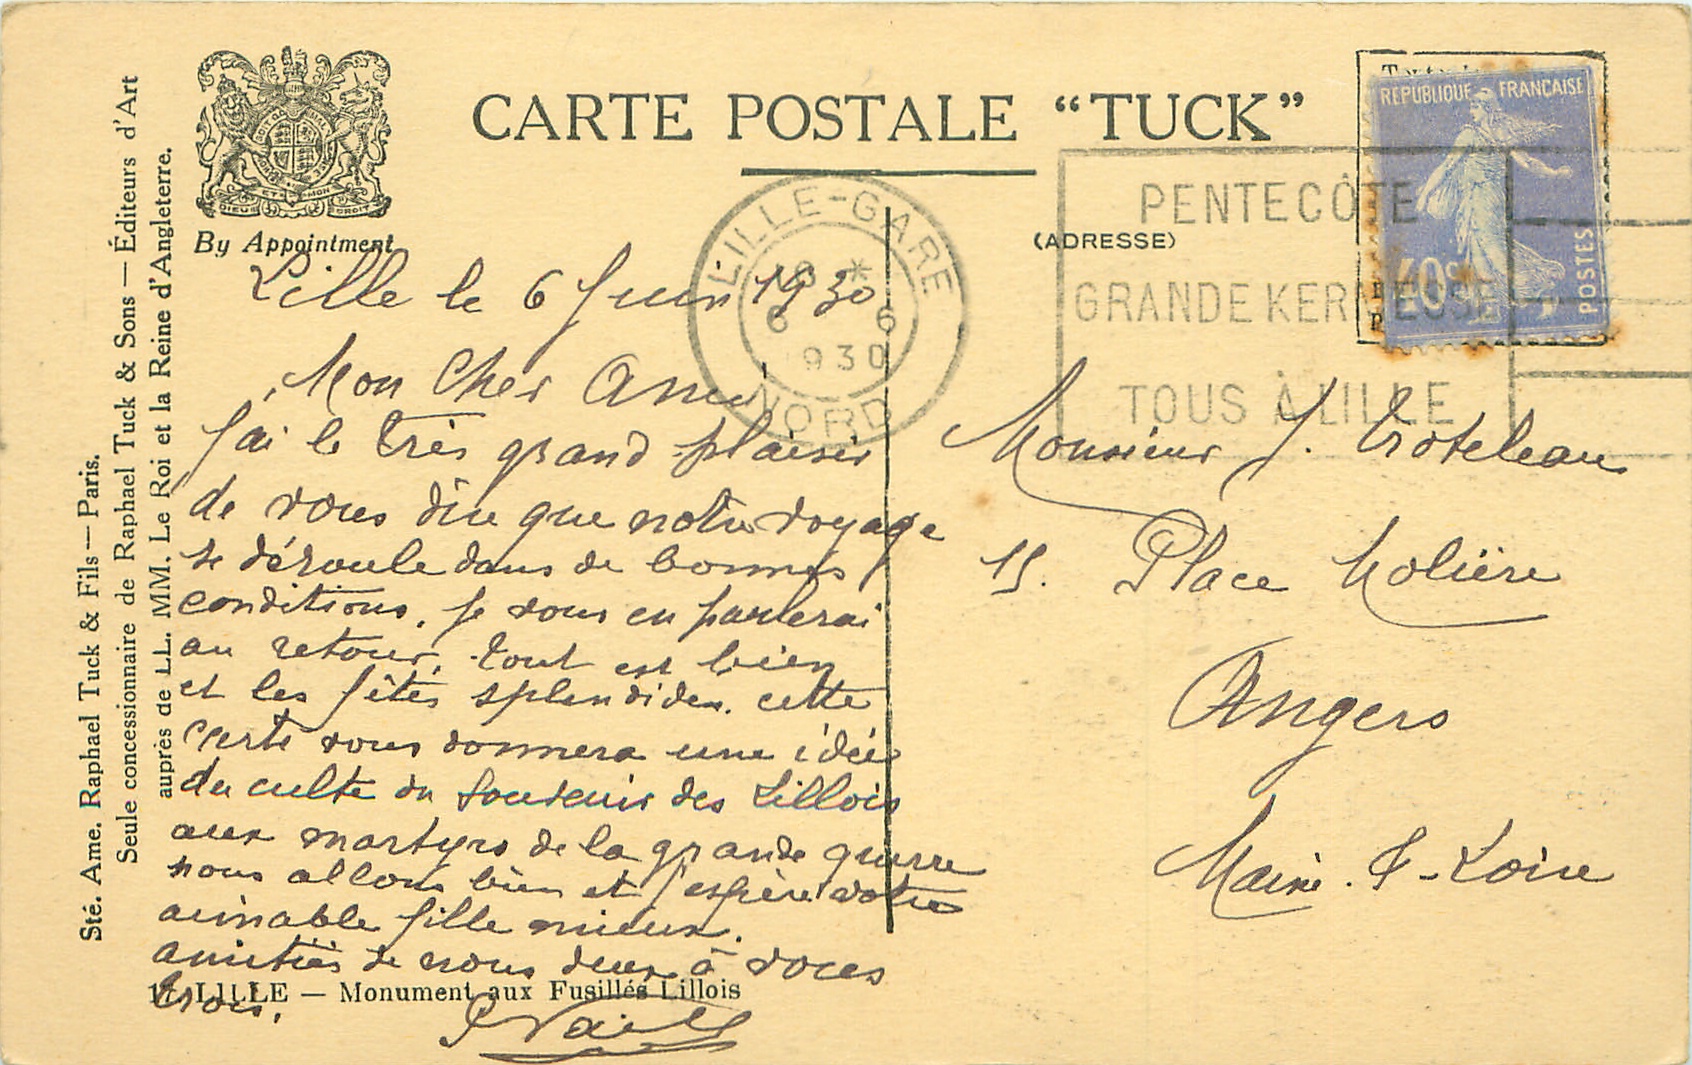 CARTE POSTALE “TUCK”
By Appointment
(ADRESSE)
Sté. Ame. Raphael Tuck & Fils — Paris.
Seule concessionnaire de Raphael Tuck & Sons — Éditeurs d'Art
auprès de LL. MM. Le Roi et la Reine d'Angleterre.
REPUBLIQUE FRANÇAISE
40c
POSTES
LILLE-GARE
18 *
6 6
1930
NORD
PENTECÔTE
GRANDE KERMESSE
TOUS À LILLE
Lille le 6 Juin 1930
Mon Cher Ami
J'ai le très grand plaisir
de vous dire que notre voyage
se déroule dans de bonnes
conditions. Je vous en parlerai
au retour, tout est bien
et les fêtes splendides. cette
carte vous donnera une idée
du culte du souvenir des Lillois
aux martyrs de la grande guerre
nous allons bien et j'espère votre
aimable fille mieux.
amitiés de nous deux à vous
trois.
Monsieur J. Troteleau
15. Place Molière
Angers
Maine & Loire
LILLE — Monument aux Fusillés Lillois